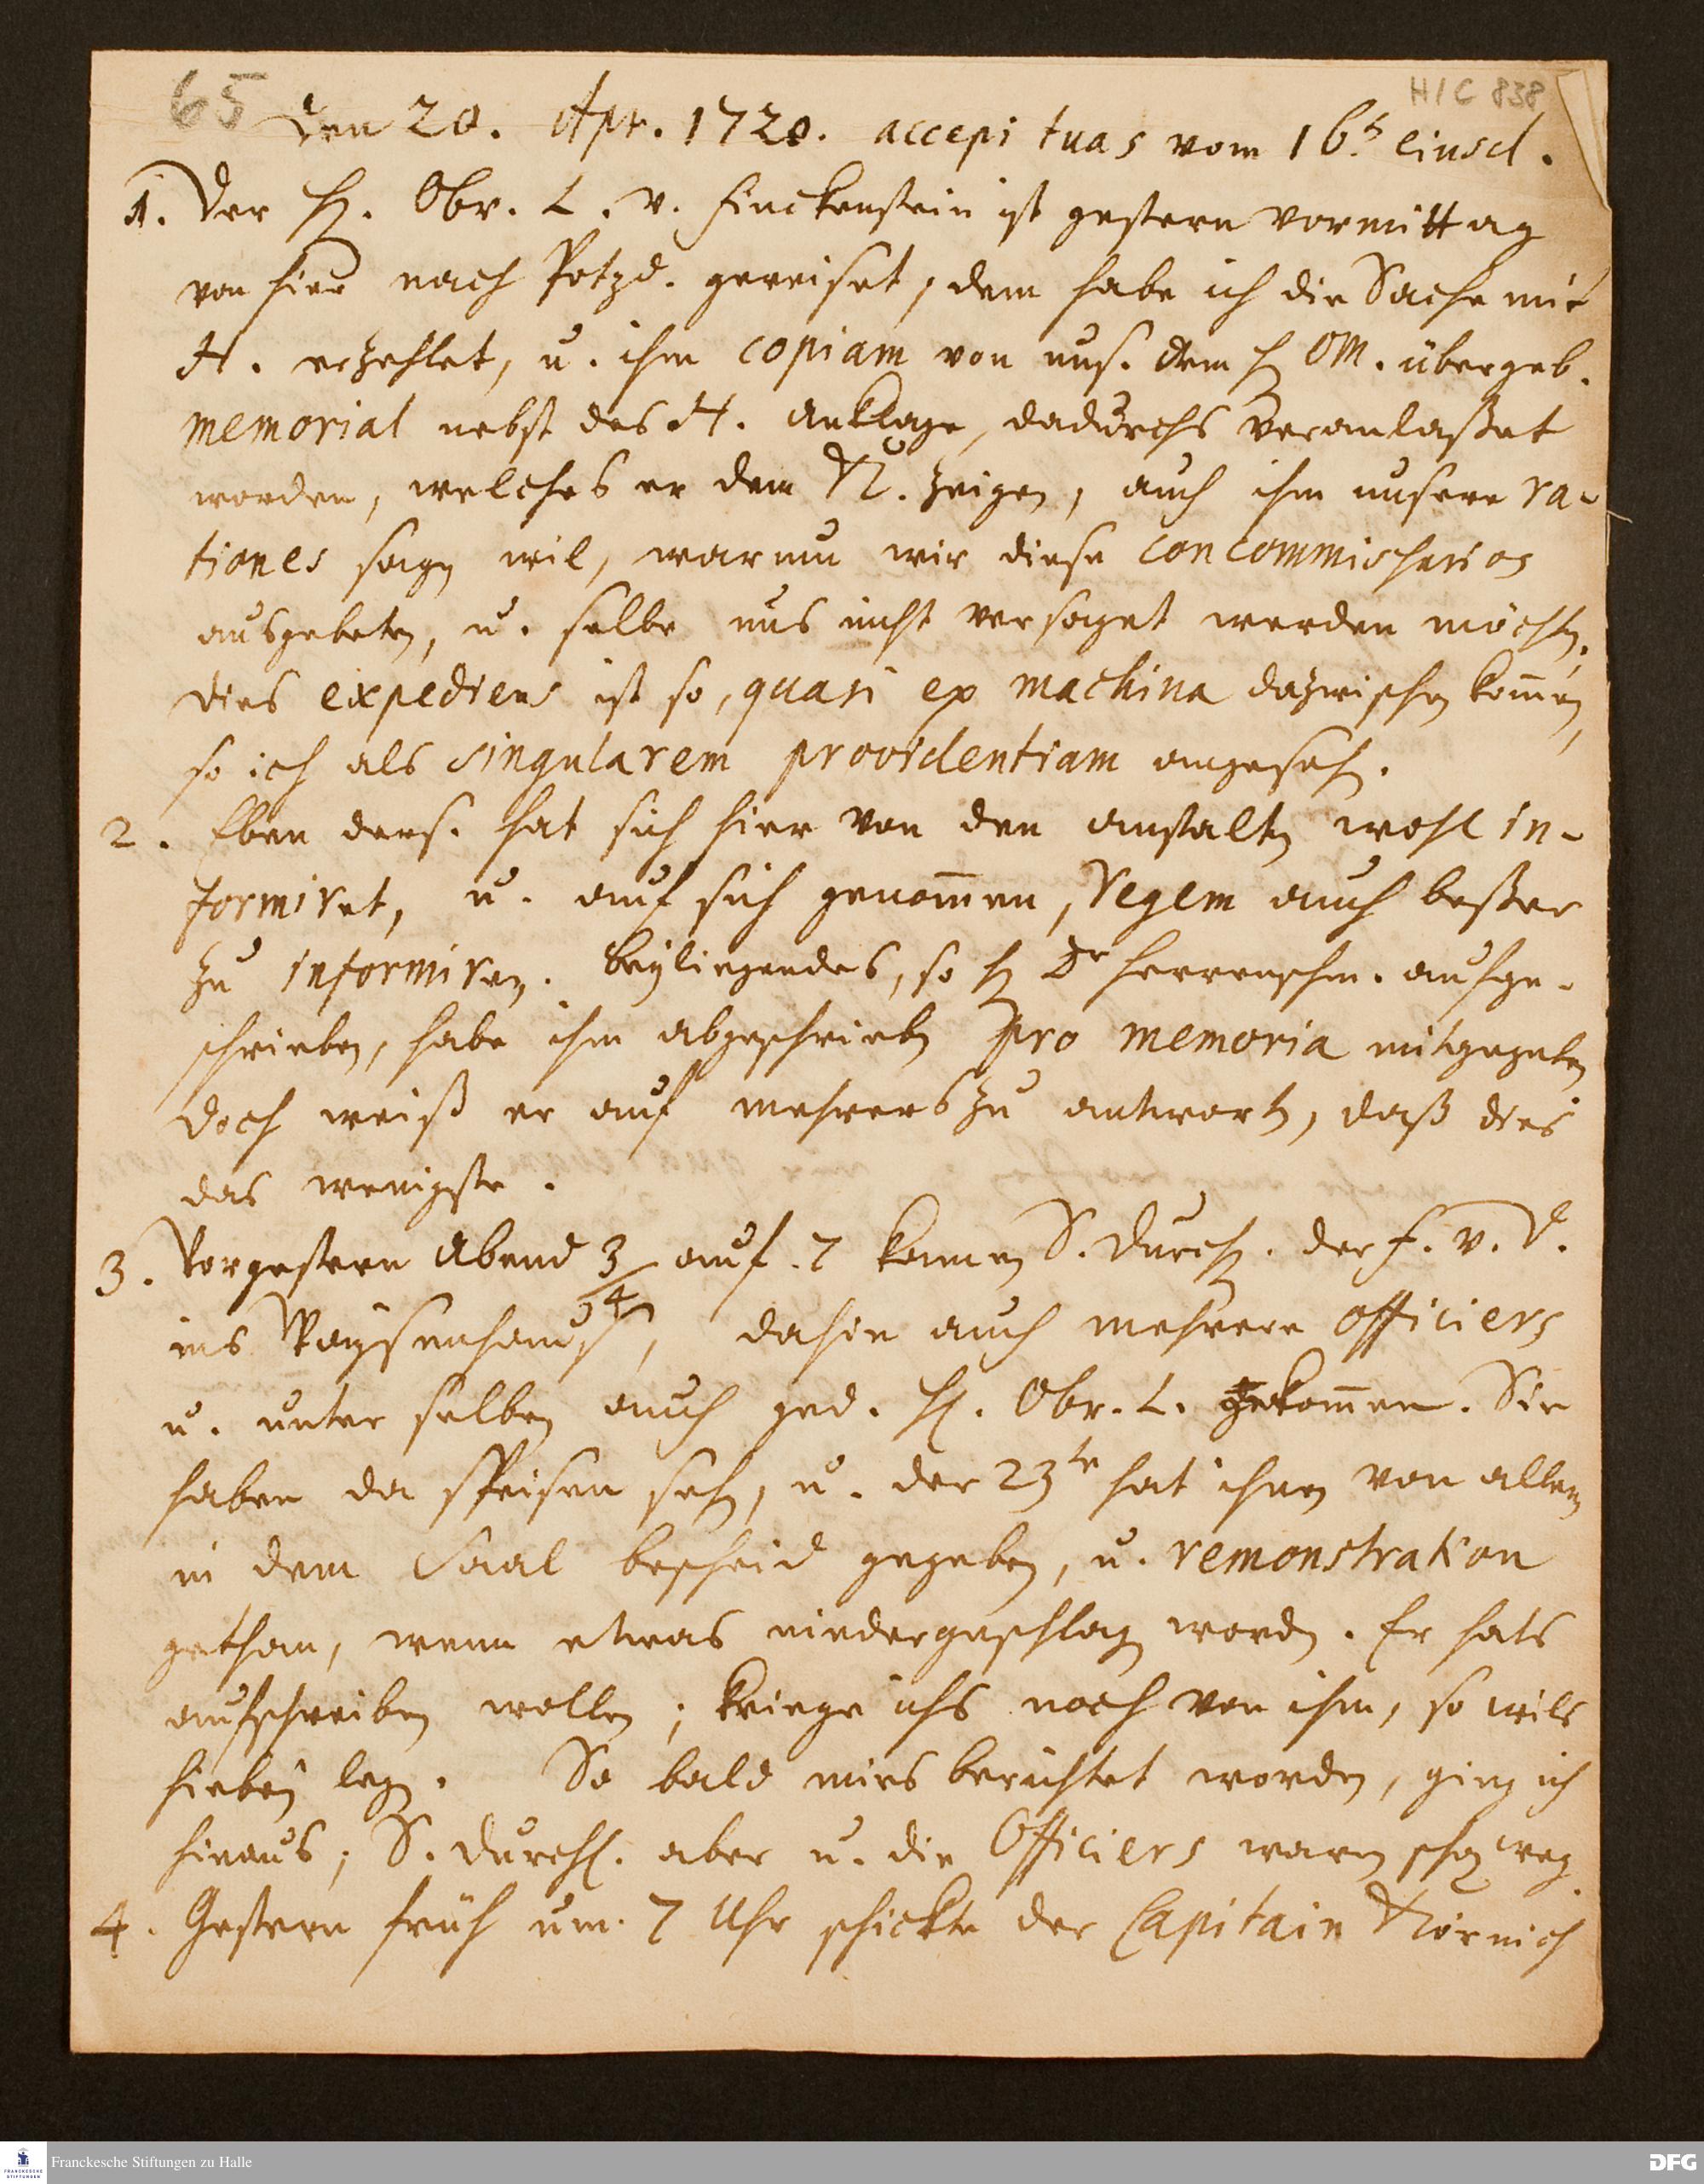 65
H/C 838
Den 20. Apr. 1720. accepi tuas vom 16t. einsch.
1. Der H. Obr. L. v. Finckenstein ist gestern vormittag
von hier nach Potzd. gereiset, dem habe ich die Sache mit
H. erzehlet, u. ihm copiam von uns. dem H OM. übergeb.
memorial nebst des H. Anklage, dadurchs veranlaßet
worden, welches er dem N. zeigen, auch ihm unsere ra-
tiones sagen wil, warum wir diese concommissarios
ausgebeten, u. selbe uns nicht versaget werden möchten.
Dies expediens ist so, quasi ex machina dazwischen kom̅en,
so ich als singularem providentiam angesehen.
2. Eben ders. hat sich hier von den anstalten wohl in-
formiret, u. auf sich genom̅en, regem auch beßer
zu informiren. Beyliegendes, so H Dr Herrnschm. aufge-
schrieben, habe ihm abgeschrieben pro memoria mitgegeben
doch weiß er auf mehrers zu antworten, daß dies
das wenigste.
3. Vorgestern Abend 3/4 auf 7 kamen S. Durchl. der F. v. D.
ins Waysenhauß, dahin auch mehrere Officiers
u. unter selben auch ged. H. Obr. L. gekom̅en. Sie
haben da speisen sehen, u. der 23te hat ihnen von allem
in dem Saal bescheid gegeben, u. remonstration
gethan, wenn etwas niedergeschlagen worden. Er hats
aufschreiben wollen; kriege ichs noch von ihm, so wils
hiebey legen. So bald mirs berichtet worden, ging ich
hinaus; S. Durchl. aber u. die Officiers waren schon weg.
4. Gestern früh um 7 Uhr schickte der Capitain
Franckesche Stiftungen zu Halle
FRANCKESCHE STIFTUNGEN
DFG